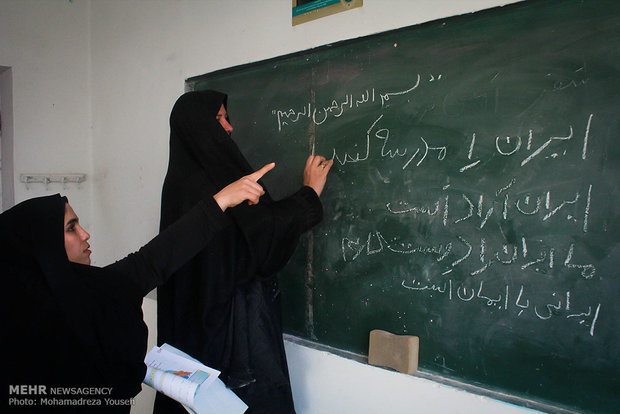 "بسم الله الرحمن الرحیم"
ایران را مدرسه
ایران آزاد است
ما ایران را دوست داریم
ایرانی با ایمان است
MEHR NEWSAGENCY
Photo: Mohamadreza Yousefi